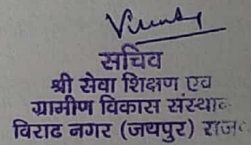 सचिव
श्री सेवा शिक्षण एवं
ग्रामीण विकास संस्थान
विराट नगर (जयपुर) राज०